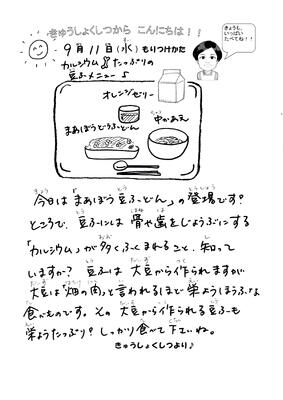 きゅうしょくしつから こんにちは！！
きょうも、
いっぱい
たべてね！！
９月１１日（水）もりつけかた
カルシウムたっぷりの
豆ふメニュー♪
オレンジゼリー
まあぼうどうふどん
中かあえ
今日は「まあぼう豆ふどん」の登場です！
ところで、豆ふには 骨や歯をじょうぶにする
「カルシウム」が多くふくまれること、知って
いますか？ 豆ふは 大豆から作られますが、
大豆は「畑の肉」と言われるほど 栄ようほうふな
食べものです。その 大豆から作られる豆ふも
栄ようたっぷり！ しっかり食べて下さいね。
きゅうしょくしつより♪